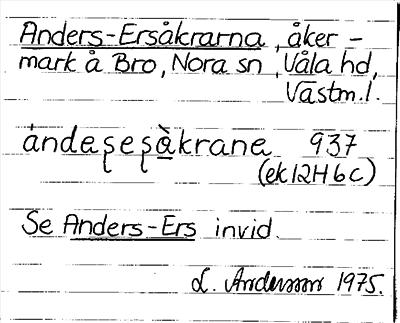 Anders-Ersåkrarna, åker -
mark å Bro, Nora sn, Våla hd,
Västm. l.
ándaʂeʂà̱krane 937
(ek 12H 6c)
Se Anders-Ers invid.
L. Andersson 1975.